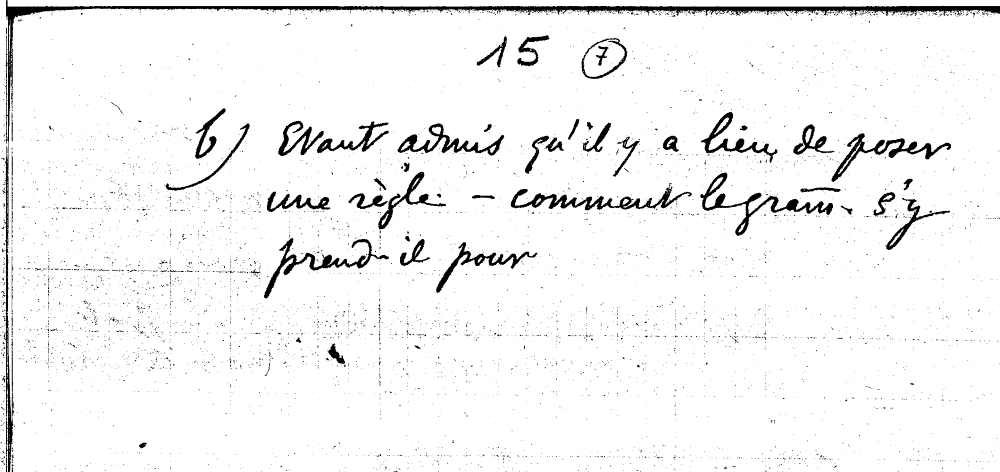 15 ⑦
b) Etant admis qu'il y a lieu de poser
une règle. – comment le gram̄. s'y
prend-il pour